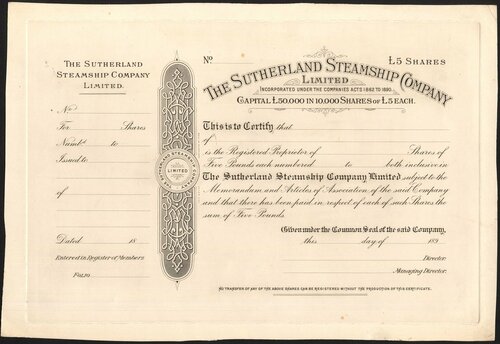 The Sutherland
Steamship Company
Limited.
No
For Shares
Numbd. to
Issued to
of
Dated 18
Entered in Register of Members
Folio
SUTHERLAND STEAMSHIP
LIMITED
COMPANY
No
£5 Shares
The Sutherland Steamship Company
Limited
Incorporated under the Companies Acts 1862 to 1890.
Capital £50,000 in 10,000 Shares of £5 each.
This is to Certify that
of
is the Registered Proprietor of Shares of
Five Pounds each numbered to both inclusive in
The Sutherland Steamship Company Limited subject to the
Memorandum and Articles of Association of the said Company
and that there has been paid in respect of each of such Shares the
sum of Five Pounds.
Given under the Common Seal of the said Company,
this day of 189
Director.
Managing Director.
NO TRANSFER OF ANY OF THE ABOVE SHARES CAN BE REGISTERED WITHOUT THE PRODUCTION OF THIS CERTIFICATE.